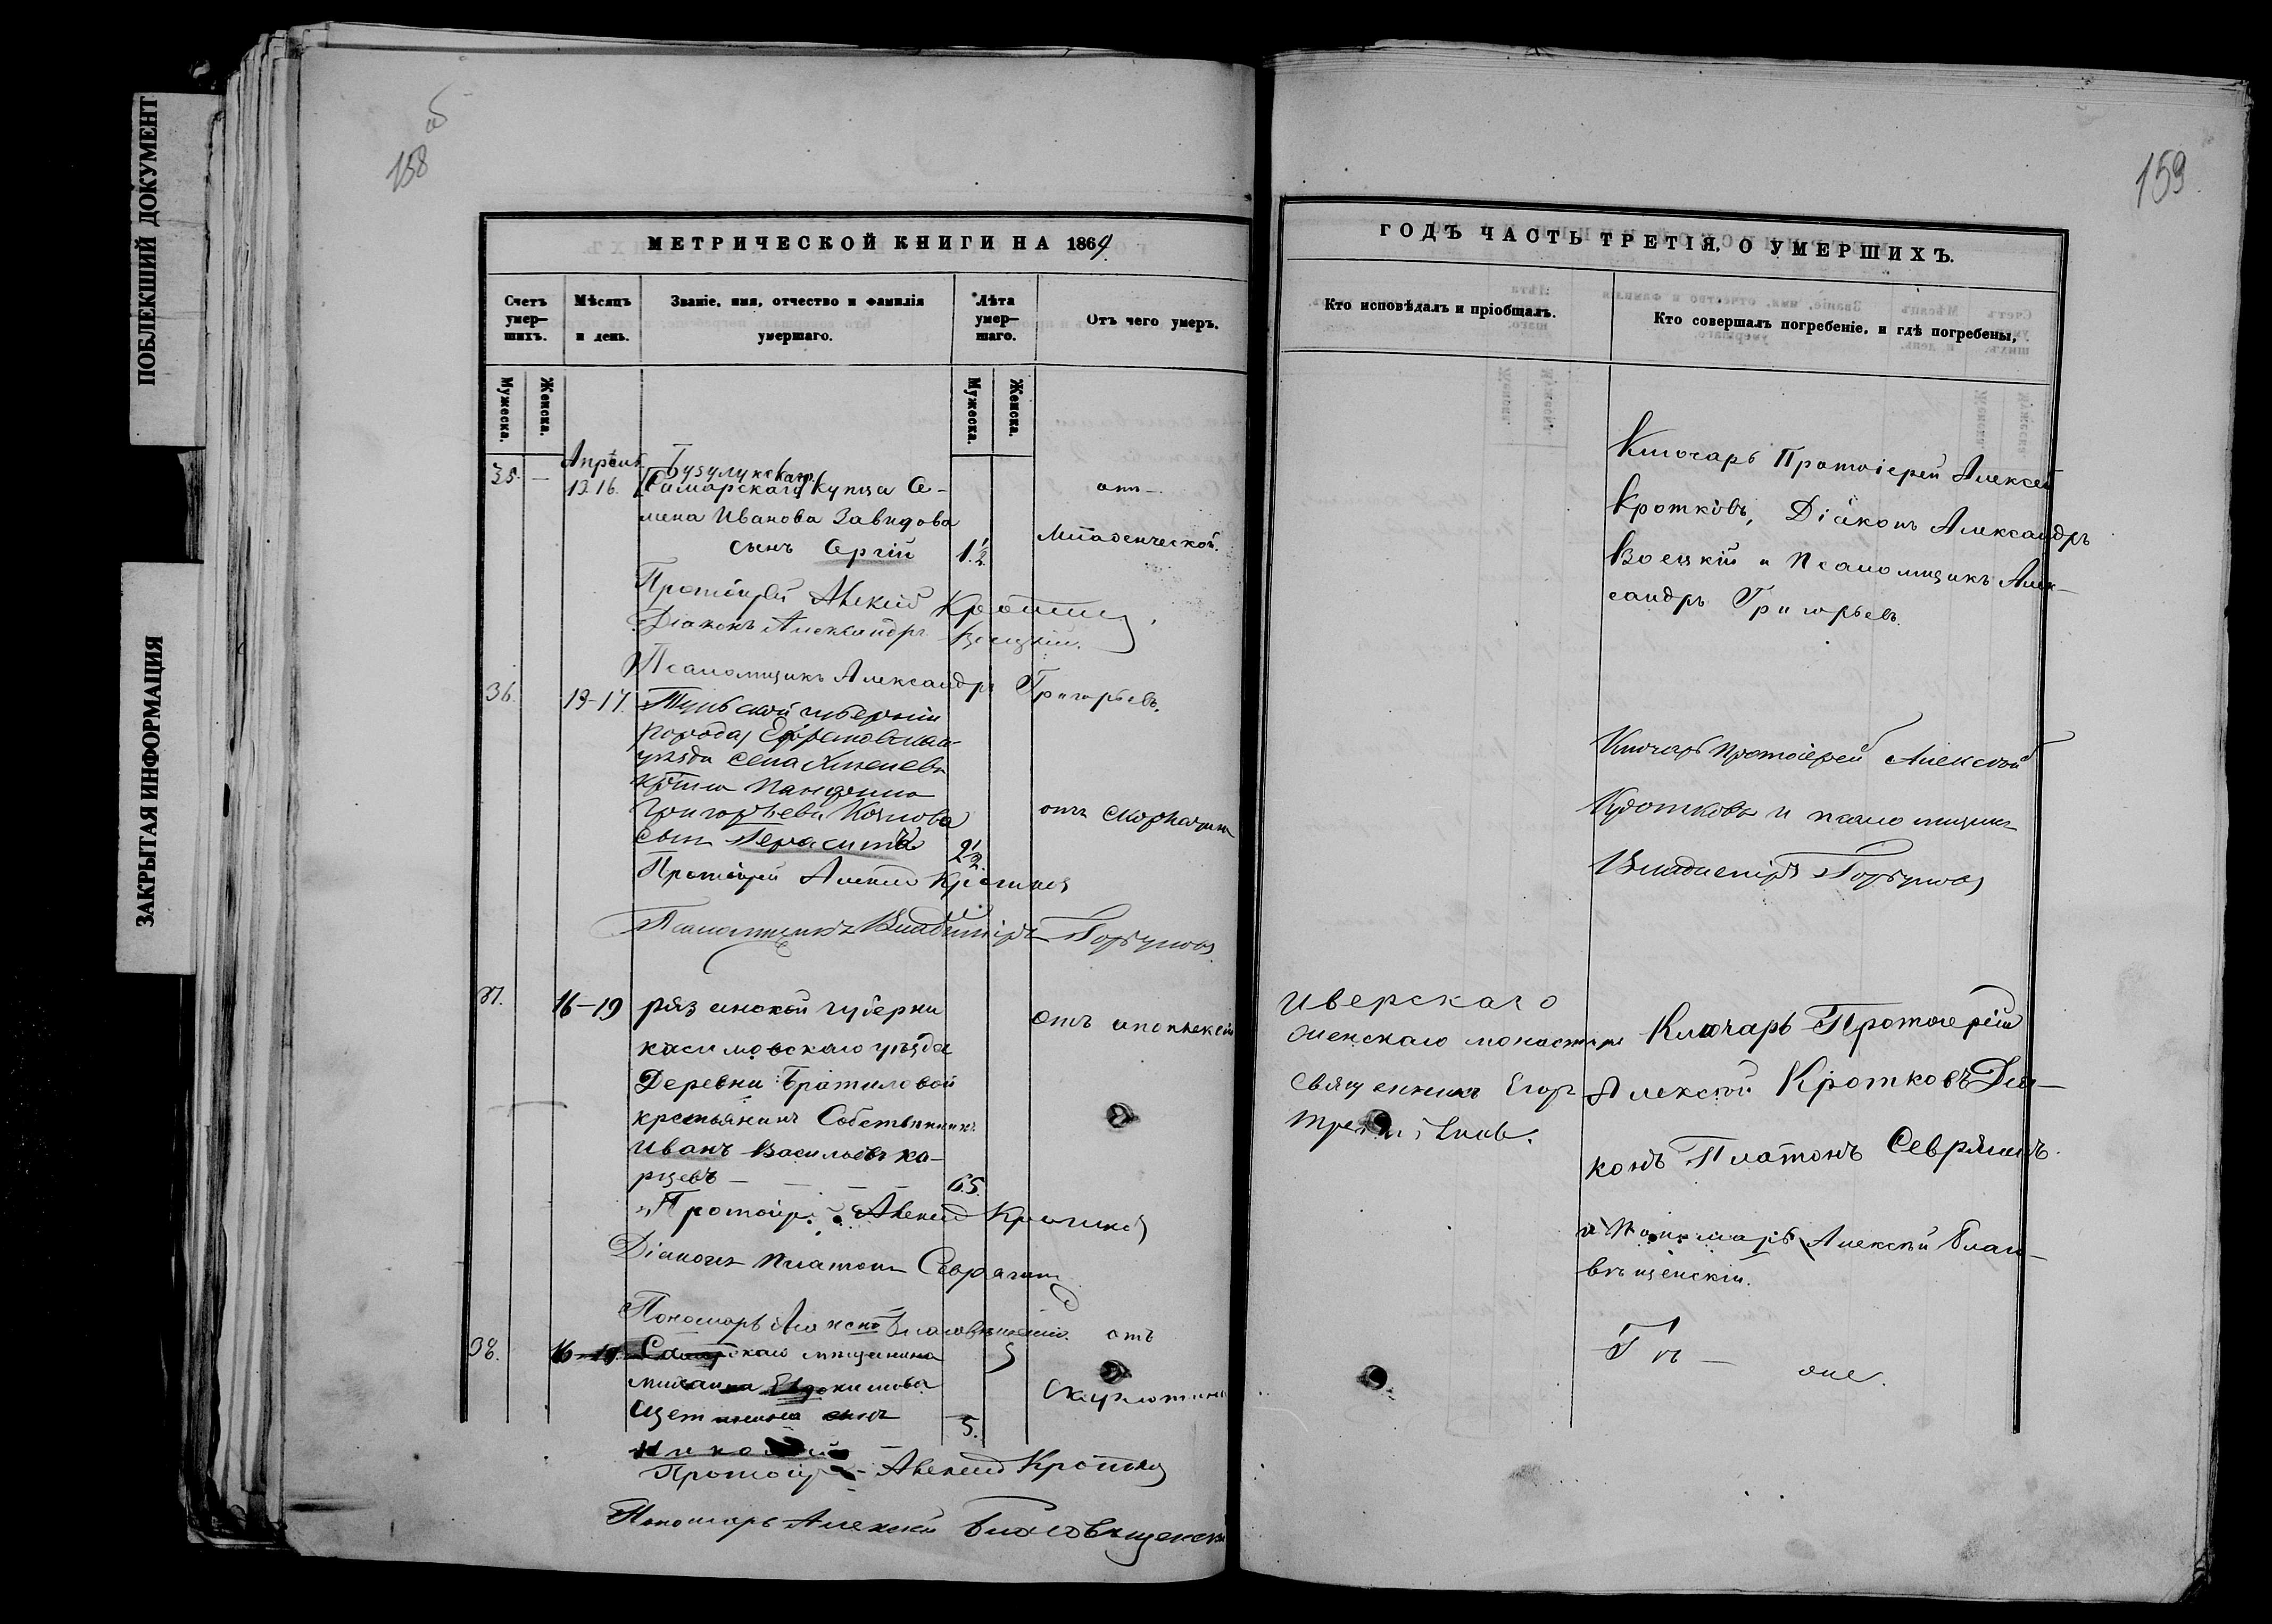 ПОБЛЕКШИЙ ДОКУМЕНТ
ЗАКРЫТАЯ ИНФОРМАЦИЯ
158 об
МЕТРИЧЕСКОЙ КНИГИ НА 1869
Счетъ умер-шихъ.
Мѣсяцъ и день.
Званіе, имя, отчество и фамилія умершаго.
Лѣта умер-шаго.
Отъ чего умеръ.
Мужеска.
Женска.
Мужеска.
Женска.
Апрѣль
35. — 13 16. Бузулукскаго
Самарскаго купца Се-
мена Иванова Завидова
сынъ Сергій 1 1/2
отъ
младенческой.
Протоіерей Алексій Кротковъ
Діаконъ Александръ Воецкій.
Псаломщикъ Александръ Григорьевъ.
36. 13-17. Тульской губерніи
города Ефремовскаго
уѣзда села
Григорьева Козлова
сынъ Герасимъ 2 1/2
отъ скарлатины
Протоіерей Алексій Кротковъ
Псаломщикъ Владиміръ Горбуновъ
37. 16-19 рязанской губерни
касимовскаго уѣзда
Деревни Братиловой
крестьянинъ Собственникъ
Иванъ Васильевъ ка-
рцевъ — — — — 65.
отъ апоплексіи
Протоіер. Алексій Кротковъ
Діаконъ Платонъ Севрюгинъ
Пономарь Алексѣй Благовѣщенскій.
38. 16-19. Самарскаго мѣщанина
Михаила Евдокимова
Щетинина сынъ 5.
Николай
отъ
Скарлотины
Протоіер. Алексій Кротковъ
Пономарь Алексѣй Благовѣщенскій
159
ГОДЪ ЧАСТЬ ТРЕТІЯ, О УМЕРШИХЪ.
Кто исповѣдалъ и пріобщалъ.
Кто совершалъ погребеніе, и гдѣ погребены,
Ключарь Протоіерей Алексѣй
Кротковъ, Діаконъ Александръ
Воецкій и Псаломщикъ Алек-
сандръ Григорьевъ.
Ключарь протоіерей Алексѣй
Кротковъ и псаломщикъ
Владиміръ Горбуновъ
Иверскаго
женскаго монастыря
священникъ Егоръ
Ключарь Протоіерей
Алексѣй Кротковъ Діа-
конъ Платонъ Севрюгинъ
и Пономарь Алексѣй Благо-
вѣщенскій.
Тѣ — же.